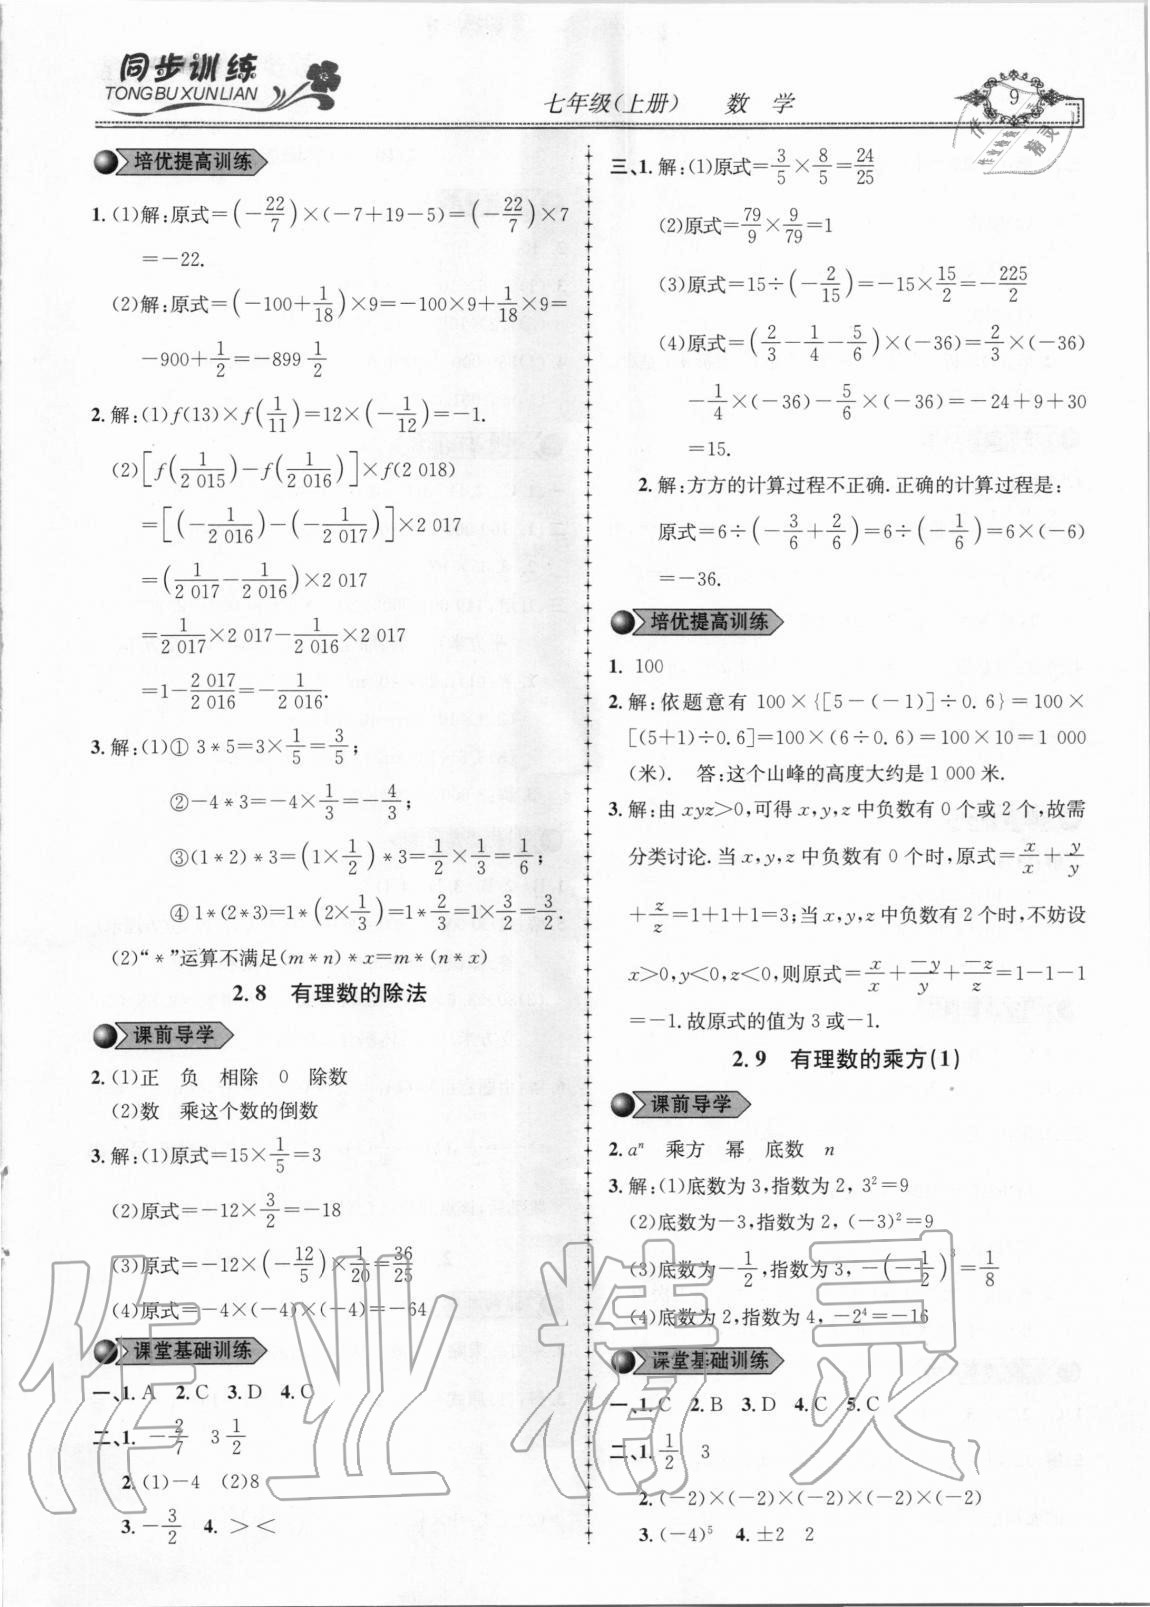 同步训练
TONGBUXUNLIAN
七年级(上册) 数 学
9
培优提高训练
1. (1)解:原式=(-22/7)×(-7+19-5)=(-22/7)×7
=-22.
(2)解:原式=(-100+1/18)×9=-100×9+1/18×9=
-900+1/2=-899 1/2
2. 解:(1)f(13)×f(1/11)=12×(-1/12)=-1.
(2)[f(1/2 015)-f(1/2 016)]×f(2 018)
=[(-1/2 016)-(-1/2 017)]×2 017
=(1/2 017-1/2 016)×2 017
=1/2 017×2 017-1/2 016×2 017
=1-2 017/2 016=-1/2 016.
3. 解:(1)① 3*5=3×1/5=3/5;
②-4*3=-4×1/3=-4/3;
③(1*2)*3=(1×1/2)*3=1/2×1/3=1/6;
④ 1*(2*3)=1*(2×1/3)=1*2/3=1×3/2=3/2.
(2)“*”运算不满足(m*n)*x=m*(n*x)
2.8 有理数的除法
课前导学
2. (1)正 负 相除 0 除数
(2)数 乘这个数的倒数
3. 解:(1)原式=15×1/5=3
(2)原式=-12×3/2=-18
(3)原式=-12×(-12/5)×1/20=36/25
(4)原式=-4×(-4)×(-4)=-64
课堂基础训练
一、1. A 2. C 3. D 4. C
二、1. -2/7 3 1/2
2. (1)-4 (2)8
3. -3/2 4. > <
三、1. 解:(1)原式=3/5×8/5=24/25
(2)原式=79/9×9/79=1
(3)原式=15÷(-2/15)=-15×15/2=-225/2
(4)原式=(2/3-1/4-5/6)×(-36)=2/3×(-36)
-1/4×(-36)-5/6×(-36)=-24+9+30
=15.
2. 解:方方的计算过程不正确.正确的计算过程是:
原式=6÷(-3/6+2/6)=6÷(-1/6)=6×(-6)
=-36.
培优提高训练
1. 100
2. 解:依题意有 100×{[5-(-1)]÷0.6}=100×
[(5+1)÷0.6]=100×(6÷0.6)=100×10=1 000
(米). 答:这个山峰的高度大约是 1 000 米.
3. 解:由 xyz>0,可得 x,y,z 中负数有 0 个或 2 个,故需
分类讨论.当 x,y,z 中负数有 0 个时,原式=x/x+y/y
+z/z=1+1+1=3;当 x,y,z 中负数有 2 个时,不妨设
x>0,y<0,z<0,则原式=x/x+-y/y+-z/z=1-1-1
=-1.故原式的值为 3 或-1.
2.9 有理数的乘方(1)
课前导学
2. aⁿ 乘方 幂 底数 n
3. 解:(1)底数为 3,指数为 2, 3²=9
(2)底数为-3,指数为 2, (-3)²=9
(3)底数为-1/2,指数为 3, -(-1/2)³=1/8
(4)底数为 2,指数为 4, -2⁴=-16
课堂基础训练
一、1. C 2. B 3. D 4. C 5. C
二、1. 1/2 3
2. (-2)×(-2)×(-2)×(-2)×(-2)
3. (-4)⁵ 4. ±2 2
作业精灵